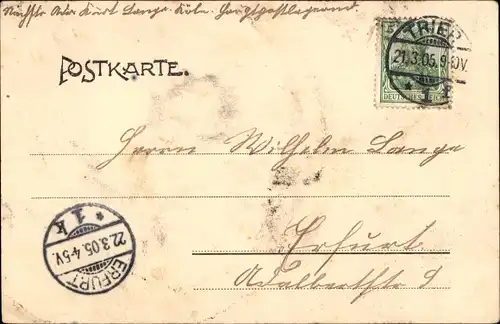 Nächste Adr. Kurt Lange. Köln. Hauptpostlagernd
POSTKARTE.
5
DEUTSCHES REICH
TRIER
21.3.05.9-10V
* 1
Herrn Wilhelm Lange
Erfurt.
Adalbertstr 9
ERFURT
22.3.05.4-5V.
* 1 k